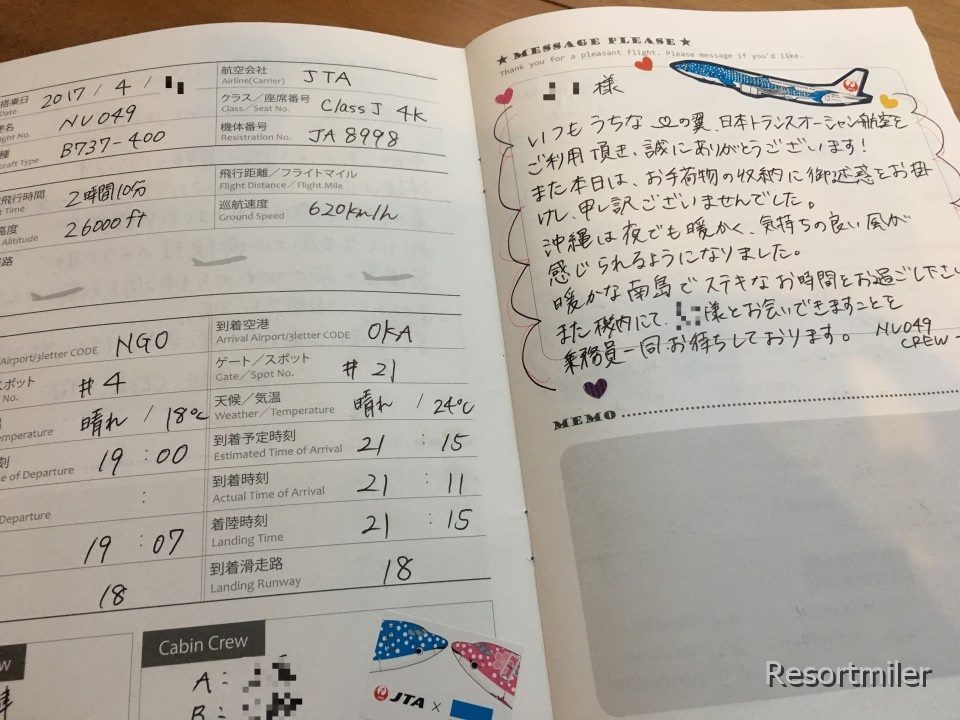 搭乗日 2017 / 4 /
Date
航空会社 JTA
Airline(Carrier)
便名 NU049
ight No.
クラス／座席番号 Class J 4K
Class／Seat No.
種 B737-400
craft Type
機体番号 JA8998
Resistration No.
飛行時間 2時間10分
t Time
飛行距離／フライトマイル
Flight Distance／Flight Mile
高度 26000ft
Altitude
巡航速度 620km/h
Ground Speed
路
Airport/3letter CODE NGO
到着空港 OKA
Arrival Airport/3letter CODE
スポット #4
No.
ゲート／スポット #21
Gate／Spot No.
晴れ / 18℃
emperature
天候／気温 晴れ / 24℃
Weather／Temperature
刻 19 : 00
e of Departure
到着予定時刻 21 : 15
Estimated Time of Arrival
:
Departure
到着時刻 21 : 11
Actual Time of Arrival
19 : 07
着陸時刻 21 : 15
Landing Time
18
到着滑走路 18
Landing Runway
w
Cabin Crew
A:
B:
JTA ×
★ MESSAGE PLEASE ★
Thank you for a pleasant flight. Please message if you'd like.
様
いつもうちなーの翼、日本トランスオーシャン航空を
ご利用頂き、誠にありがとうございます!
また本日は、お手荷物の収納に御迷惑をお掛
けし、申し訳ございませんでした。
沖縄は夜でも暖かく、気持ちの良い風が
感じられるようになりました。
暖かな南島でステキなお時間をお過ごし下さい
また機内にて、様とお会いできますことを
乗務員一同お待ちしております。
NU049
CREW
MEMO
Resortmiler